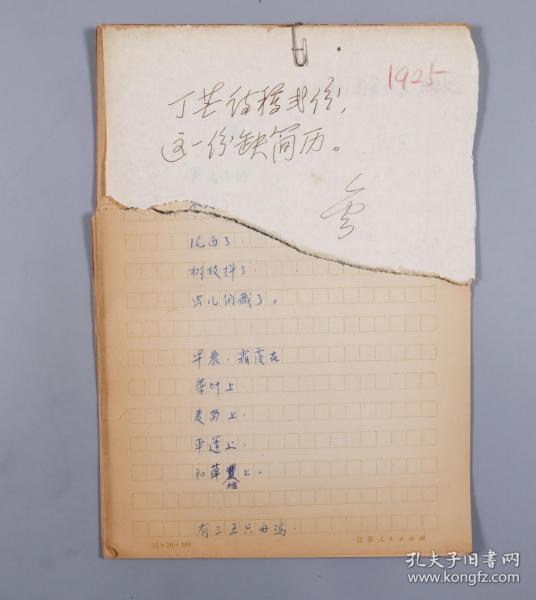 1925
丁芒诗稿弍份，
这一份缺简历。
雪
泥白了，
树枝抖了，
虫儿们藏了。
早晨，霜凌在
菜叶上，
麦苗上，
和草
上。
有三五只母鸡，
15×20=300
江苏人民出版社
孔夫子旧书网
www.kongfz.com